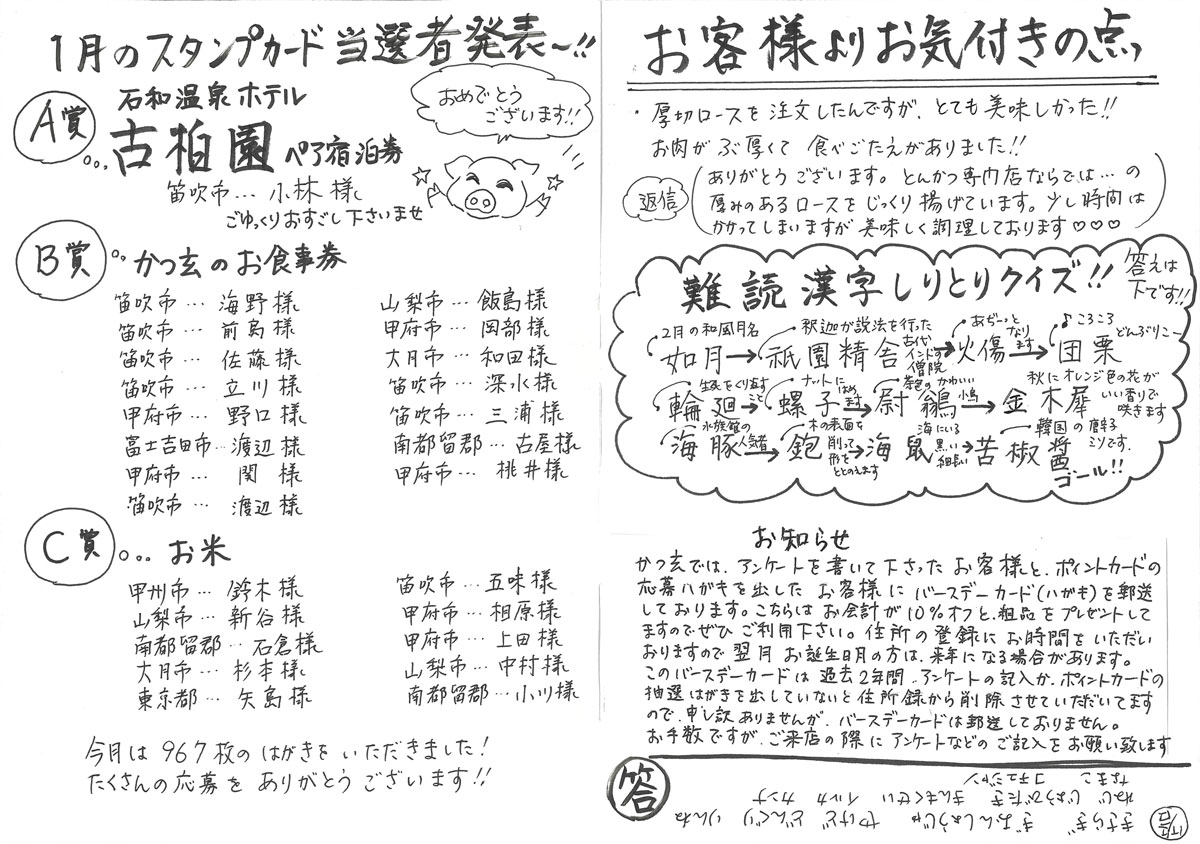 1月のスタンプカード当選者発表〜!!
A賞
石和温泉ホテル
古柏園 ペア宿泊券
笛吹市…小林様
ごゆっくりおすごし下さいませ
おめでとう
ございます!!
B賞 かつ玄のお食事券
笛吹市…海野様
笛吹市…前島様
笛吹市…佐藤様
笛吹市…立川様
甲府市…野口様
富士吉田市…渡辺様
甲府市…関様
笛吹市…渡辺様
山梨市…飯島様
甲府市…岡部様
大月市…和田様
笛吹市…深水様
笛吹市…三浦様
南都留郡…古屋様
甲府市…桃井様
C賞…お米
甲州市…鈴木様
山梨市…新谷様
南都留郡…石倉様
大月市…杉本様
東京都…矢島様
笛吹市…五味様
甲府市…相原様
甲府市…上田様
山梨市…中村様
南都留郡…小川様
今月は967枚のはがきをいただきました!
たくさんの応募をありがとうございます!!
お客様よりお気付きの点
・厚切ロースを注文したんですが、とても美味しかった!!
お肉がぶ厚くて食べごたえがありました!!
返信
ありがとうございます。とんかつ専門店ならでは…の
厚みのあるロースをじっくり揚げています。少し時間は
かかってしまいますが美味しく調理しております♡♡♡
難読漢字しりとりクイズ!!
答えは
下です!!
2月の和風月名
釈迦が説法を行った
古代
インドの
僧院
あぢーっと
なり
ます
♪ころころ
どんぶりこー
如月→祇園精舎→火傷→団栗
生死をくり返す
こと
ナットに
はめ
ます
茶色のかわいい
小鳥
秋にオレンジ色の花が
いい香りで
咲きます
輪廻→螺子→尉鶲→金木犀
水族館の
人気者
木の表面を
削って
形を
ととのえます
海にいる
黒い
細長い
韓国の辛る
ミソです。
海豚→鉋→海鼠→苦椒醤
ゴール!!
お知らせ
かつ玄では、アンケートを書いて下さったお客様と、ポイントカードの
応募ハガキを出したお客様にバースデーカード(ハガキ)を郵送
しております。こちらはお会計が10%オフと、粗品をプレゼントして
ますのでぜひご利用下さい。住所の登録にお時間をいただい
おりますので翌月お誕生日の方は、来年になる場合があります。
このバースデーカードは過去2年間、アンケートの記入か、ポイントカードの
抽選はがきを出していないと住所録から削除させていただいてます
ので、申し訳ありませんが、バースデーカードは郵送しておりません。
お手数ですが、ご来店の際にアンケートなどのご記入をお願い致します
答
きさらぎ ぎおんしょうじゃ やけど どんぐり りんね
ねじ じょうびたき きんもくせい イルカ カンナ
なまこ コチュジャン